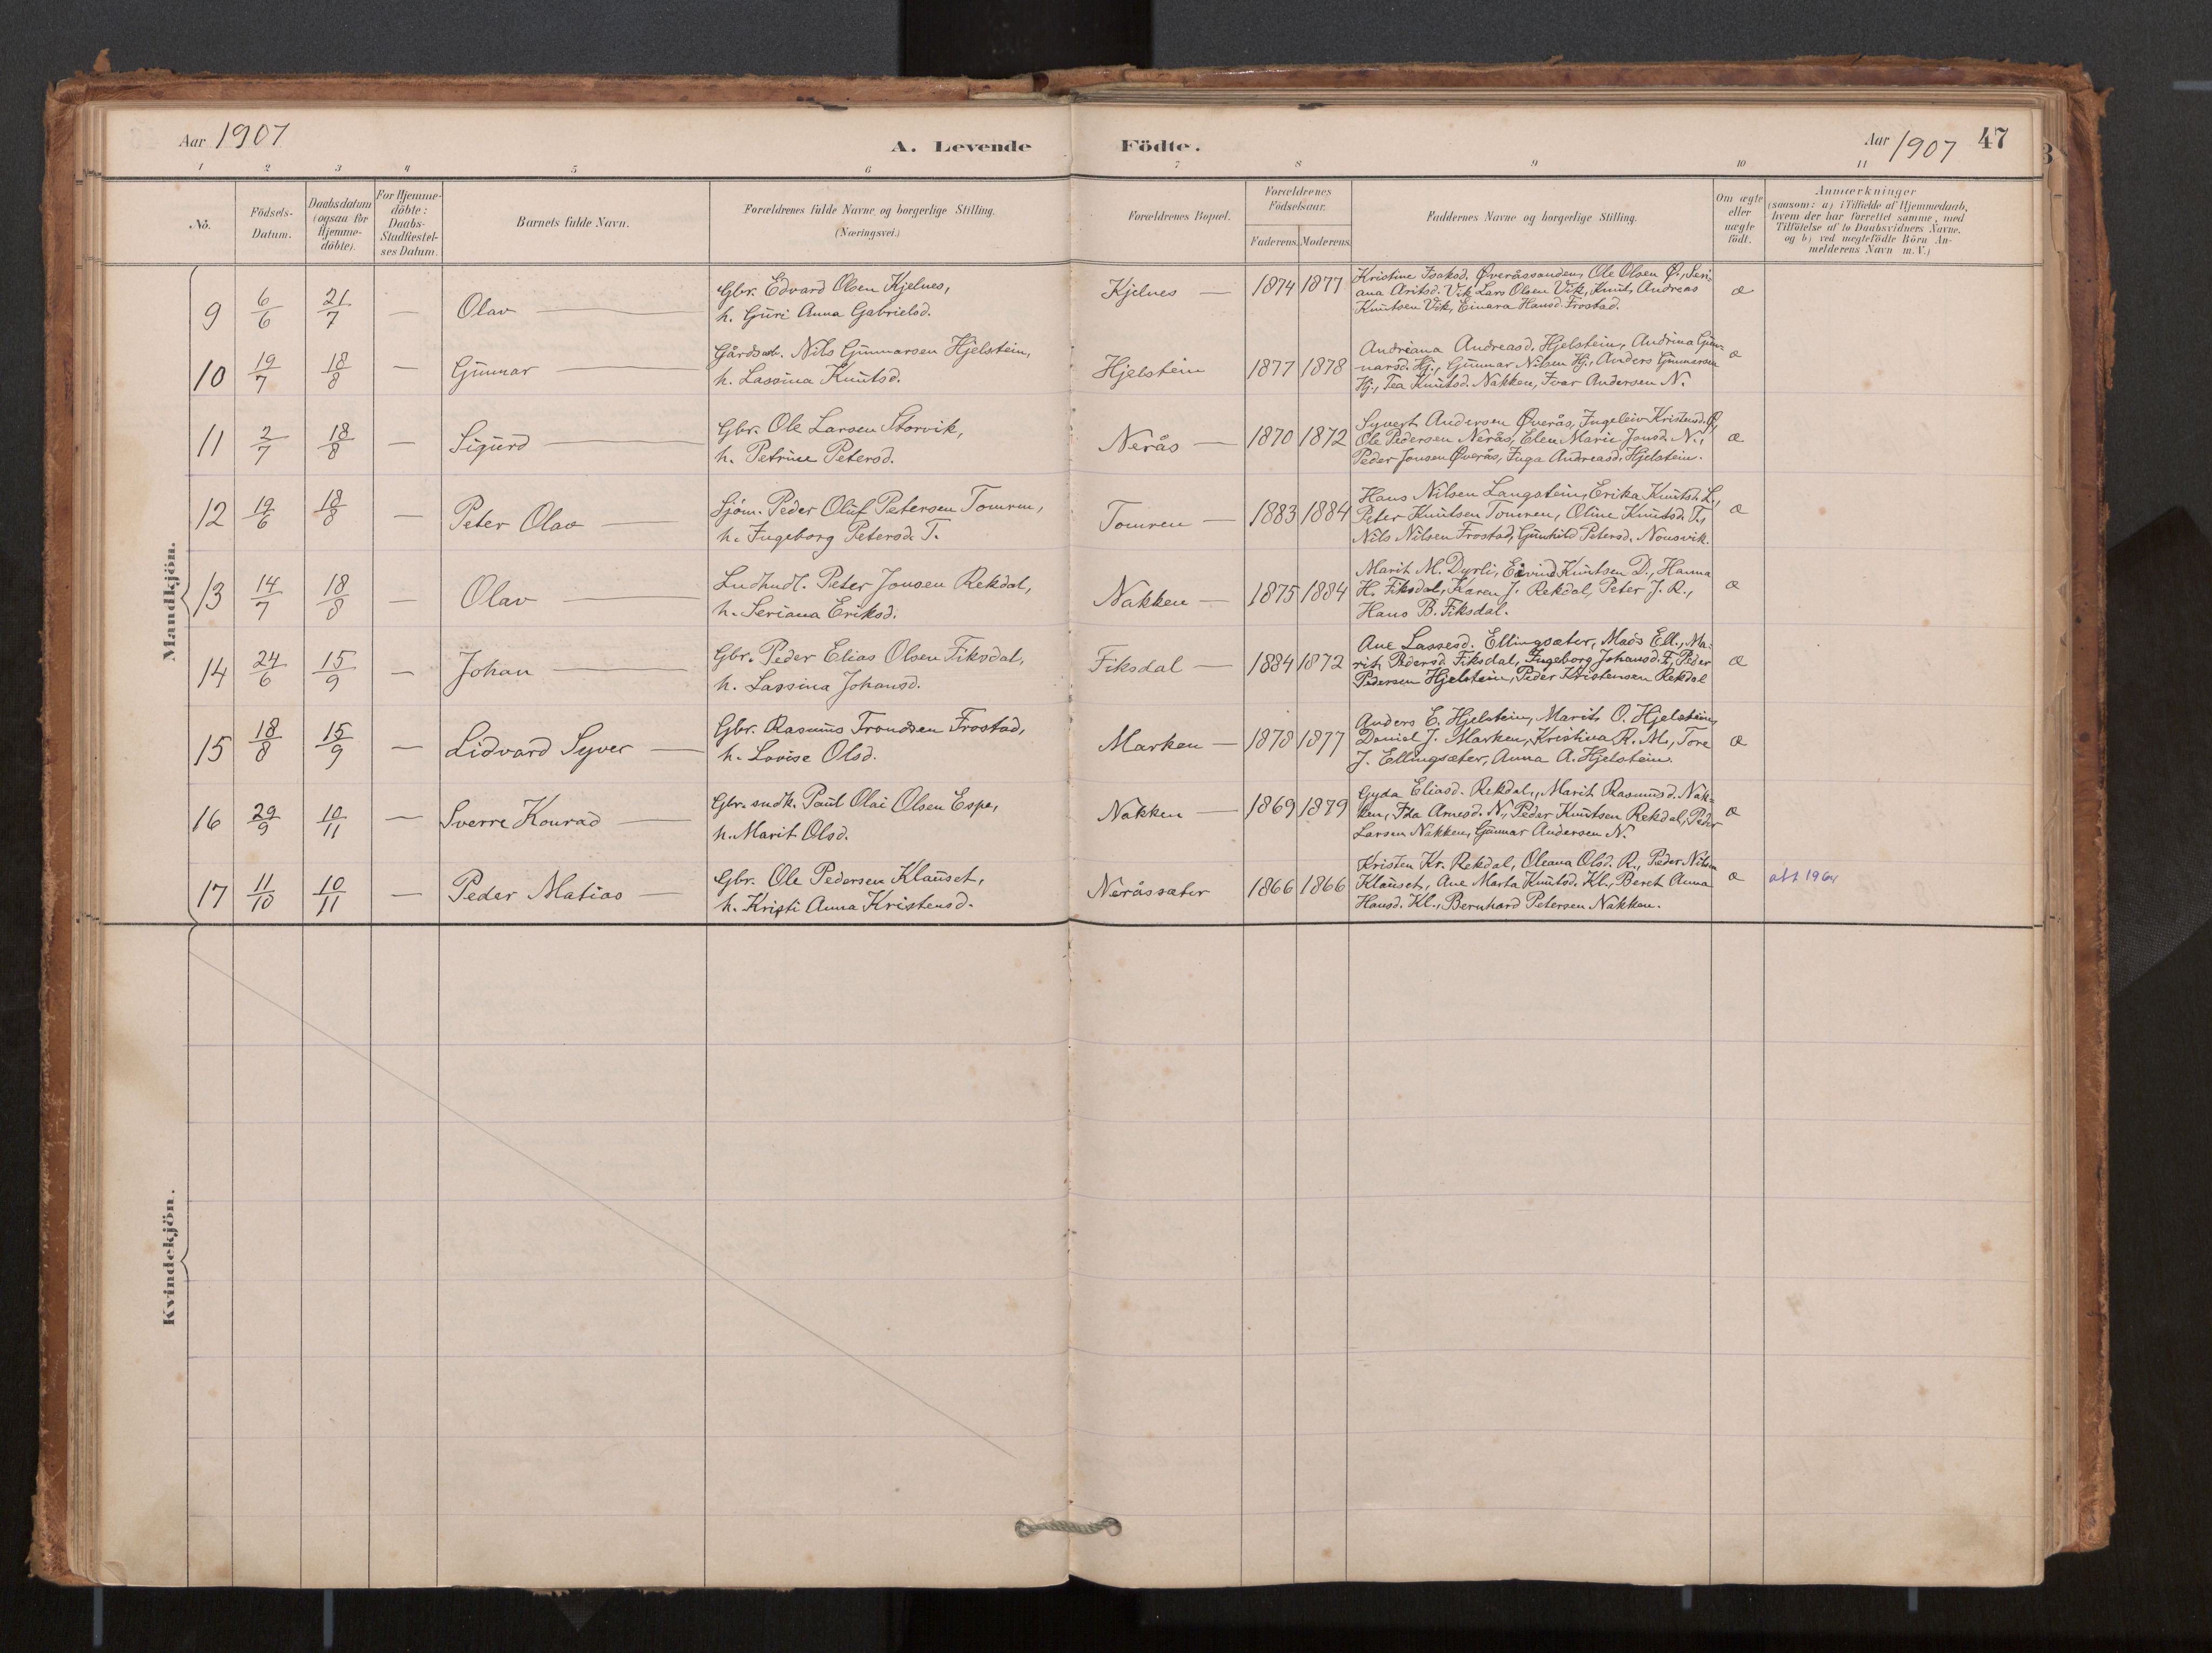 Aar 1907 A. Levende Födte. Aar 1907 47
1 2 3 4 5 6 7 8 9 10 11
No. Födsels-Datum. Daabsdatum (ogsaa for Hjemme-döbte). For Hjemme-döbte: Daabs-Stadfæstel-ses Datum. Barnets fulde Navn. Forældrenes fulde Navne og borgerlige Stilling. (Næringsvei.) Forældrenes Bopæl. Forældrenes Födselsaar. Faderens. Moderens. Faddernes Navne og borgerlige Stilling. Om ægte eller uægte födt. Anmærkninger (saasom: a) i Tilfælde af Hjemmedaab, hvem der har forrettet samme, med Tilföielse af to Daabsvidners Navne, og b) ved uægtefödte Börn An-melderens Navn m. V.)
Mandkjön.
9 6/6 21/7 — Olav — Gbr. Edvard Olsen Kjelnes, Kjelnes — 1874 1877 Kristine Isaksd. Øveråssanden, Ole Olsen Ø., Seri-
h. Guri Anna Gabrielsd. ana Aritsd. Vik, Lars Olsen Vik, Knut Andreas æ
Knutsen Vik, Einara Hansd. Frostad.
10 19/7 18/8 — Gunnar — Gårdsarb. Nils Gunnarsen Hjelstein, Hjelstein 1877 1878 Andreana Andreasd. Hjelstein, Andrina Gun-
h. Lassina Knutsd. narsd. Hj., Gunnar Nilsen Hj., Anders Gunnarsen æ
Hj., Tea Knutsd. Nakken, Ivar Andersen N.
11 2/7 18/8 — Sigurd — Gbr. Ole Larsen Storvik, Nerås — 1870 1872 Syvert Andersen Øverås, Ingeleiv Kristensd. Ø,
h. Petrine Petersd. Ole Pedersen Nerås, Elen Marie Jonsd. N., æ
Peder Jonsen Øverås, Inga Andreasd. Hjelstein.
12 19/6 18/8 — Peter Olav — Sjöm. Peder Oluf Petersen Tomren, Tomren — 1883 1884 Hans Nilsen Langstein, Erika Knutsd. L.,
h. Ingeborg Petersd. T. Peter Knutsen Tomren, Oline Knutsd. T., æ
Nils Nilsen Frostad, Gunhild Petersd. Nonsvik.
13 14/7 18/8 — Olav — Ludhndl. Peter Jonsen Rekdal, Nakken — 1875 1884 Marit M. Dyrli, Eivind Knutsen D., Hanna
h. Seriana Eriksd. H. Fiksdal, Karen J. Rekdal, Peter J. R., æ
Hans B. Fiksdal.
14 24/6 15/9 — Johan — Gbr. Peder Elias Olsen Fiksdal, Fiksdal — 1884 1872 Ane Lassesd. Ellingsæter, Mads Ell., Ma-
h. Lassina Johansd. rit Pedersd. Fiksdal, Ingeborg Johansd. F., Peder æ
Pedersen Hjelstein, Peder Kristensen Rekdal
15 18/8 15/9 — Lidvard Syver — Gbr. Rasmus Trondsen Frostad, Marken — 1878 1877 Anders E. Hjelstein, Marit O. Hjelstein,
h. Lovise Olsd. Daniel J. Marken, Kristina R. M., Tore æ
J. Ellingsæter, Anna A. Hjelstein.
16 29/9 10/11 — Sverre Konrad — Gbr. sndk. Paul Olai Olsen Espe, Nakken — 1869 1879 Gyda Eliasd. Rekdal, Marit Rasmusd. Nak-
h. Marit Olsd. ken, Ida Arnesd. N., Peder Knutsen Rekdal, Peder æ
Larsen Nakken, Gunnar Andersen N.
17 11/10 10/11 — Peder Matias — Gbr. Ole Pedersen Klauset, Neråssæter 1866 1866 Kristen Kr. Rekdal, Oleana Olsd. R., Peder Nilsen
h. Kristi Anna Kristensd. Klauset, Ane Marta Knutsd. Kl., Beret Anna æ att 1964
Hansd. Kl., Bernhard Petersen Nakken.
Kvindekjön.